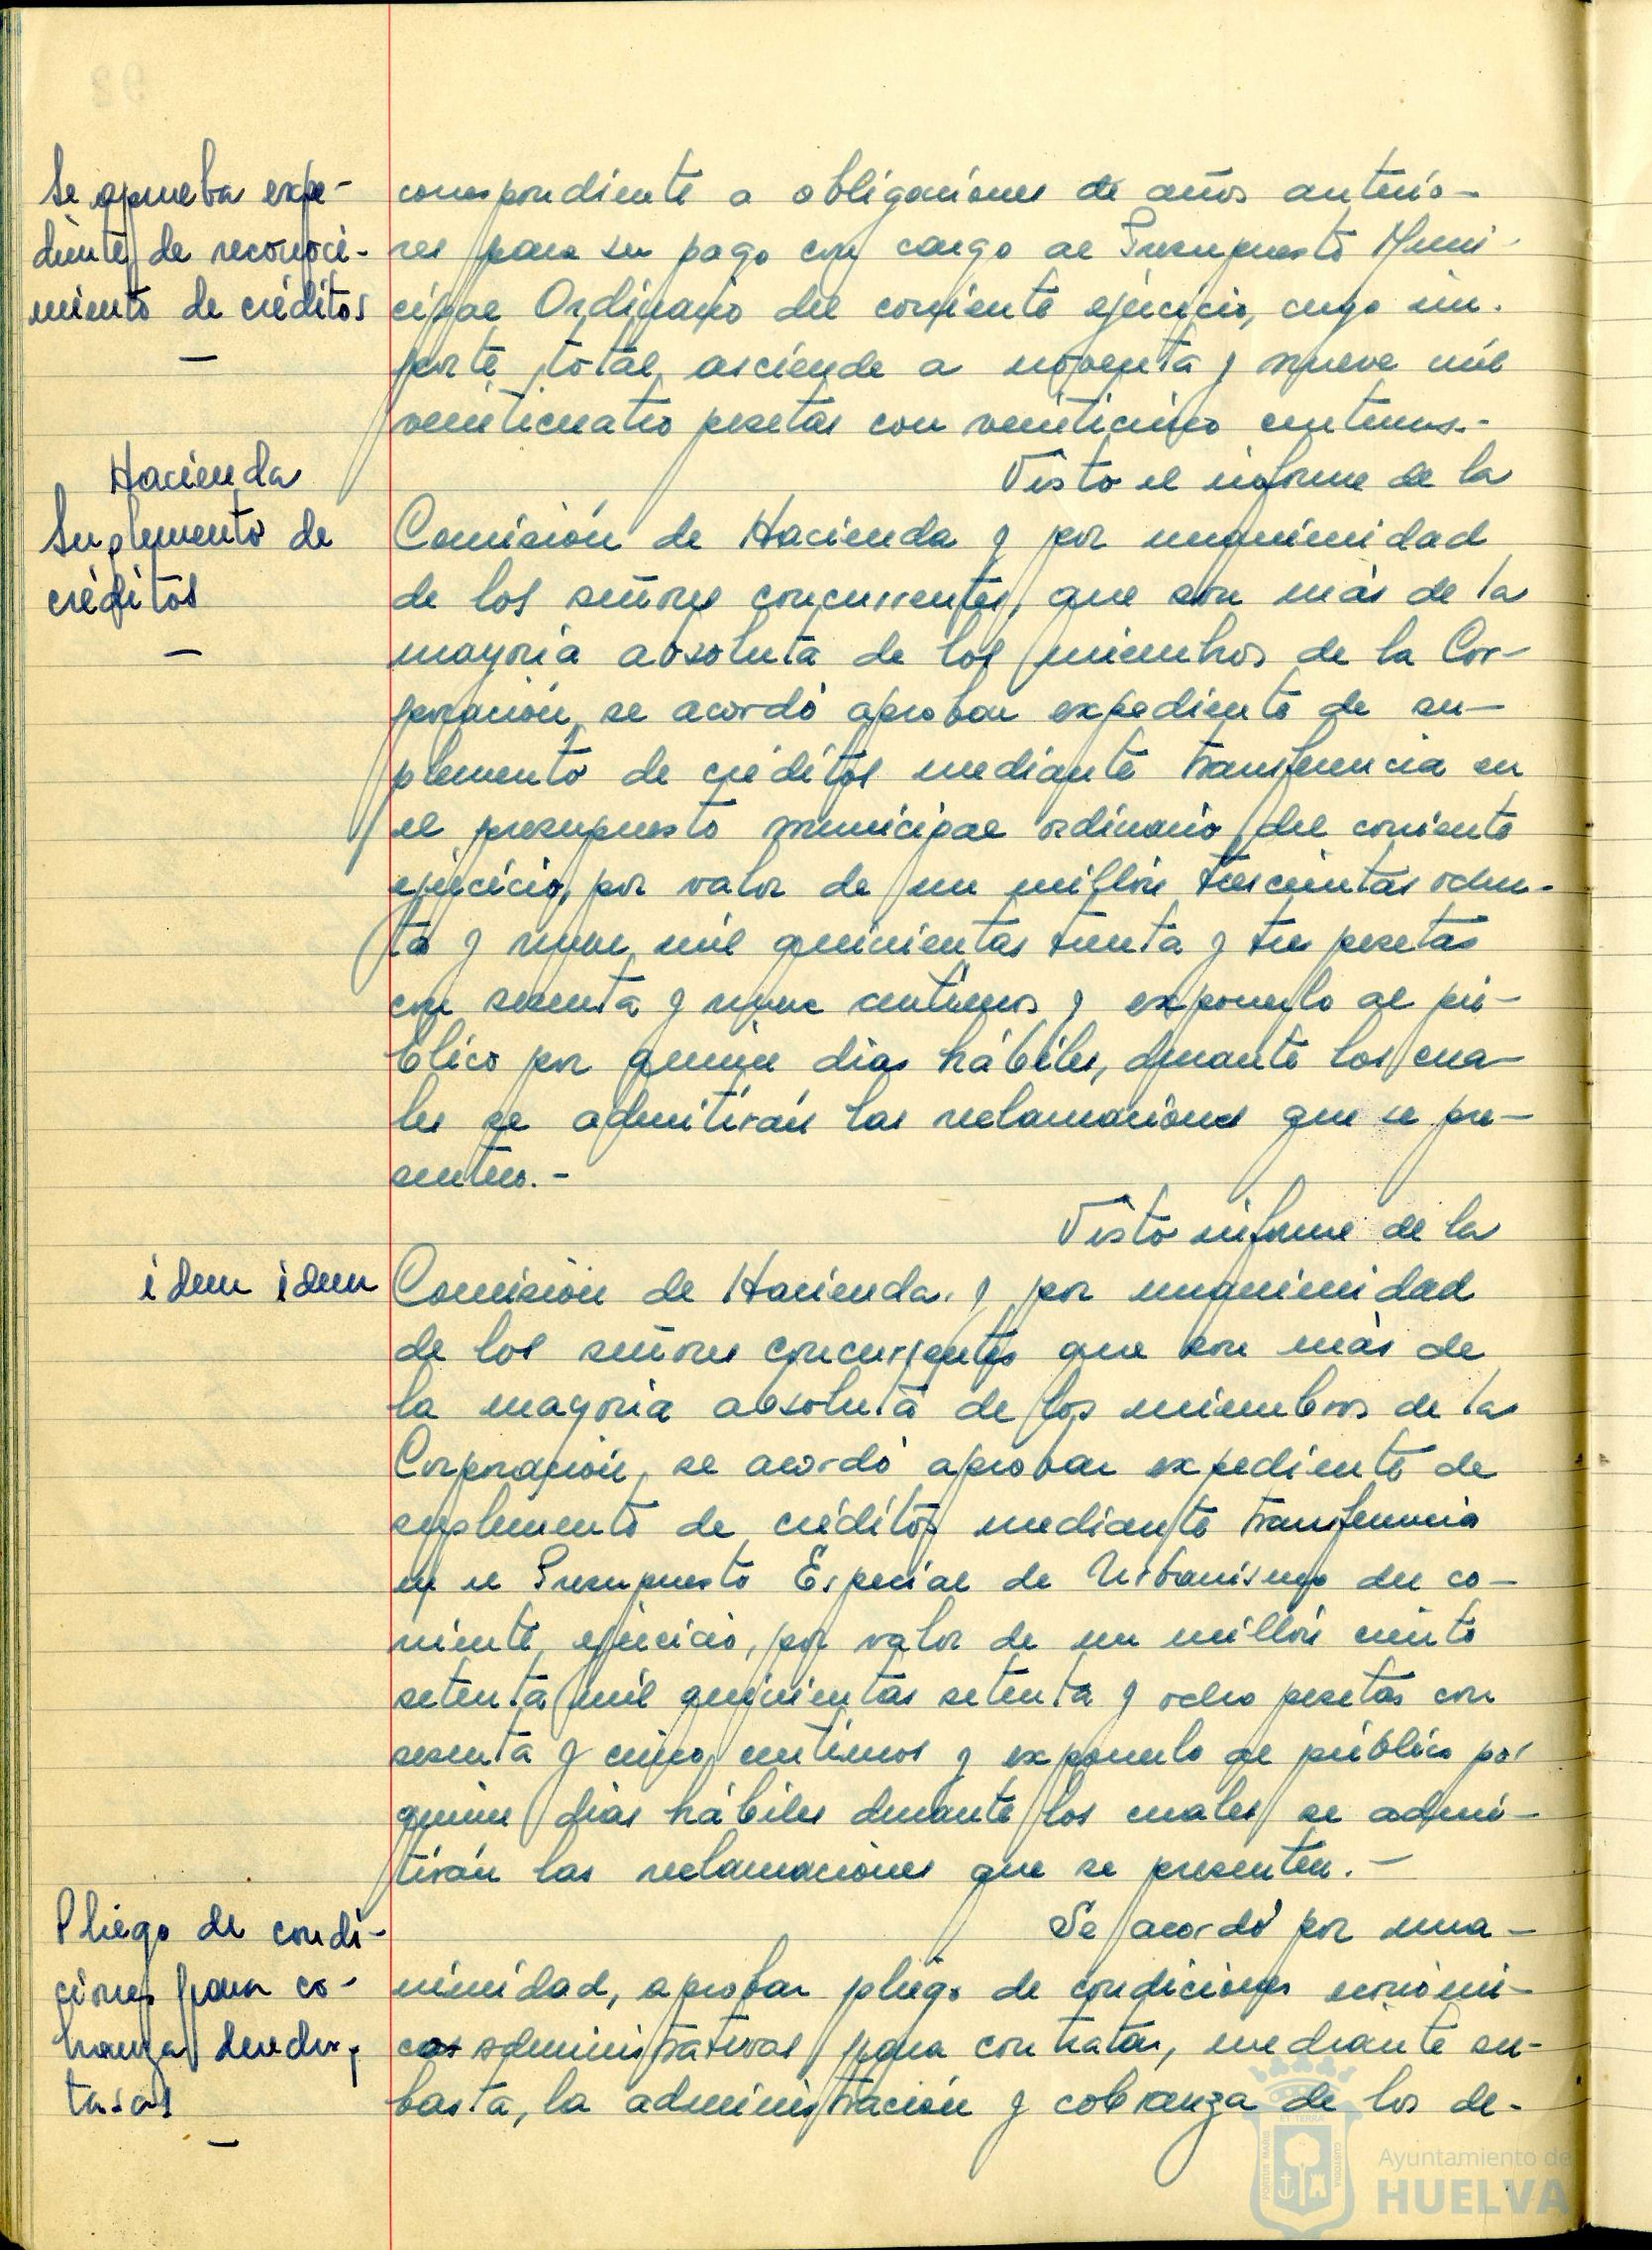 Se aprueba expe-
diente de reconoci-
miento de créditos
—
correspondiente a obligaciones de años anterio-
res para su pago con cargo al Presupuesto Muni-
cipal Ordinario del corriente ejercicio, cuyo im-
porte total asciende a noventa y nueve mil
veinticuatro pesetas con veinticinco centimos.-
Hacienda
Suplemento de
créditos
—
Visto el informe de la
Comisión de Hacienda y por unanimidad
de los señores concurrentes, que son más de la
mayoria absoluta de los miembros de la Cor-
poración, se acordó aprobar expediente de su-
plemento de créditos mediante transferencia en
el presupuesto municipal ordinario del corriente
ejercicio, por valor de un millón trescientas ochen-
ta y nueve mil quinientas treinta y tres pesetas
con sesenta y nueve centimos y exponerlo al pú-
blico por quince dias hábiles, durante los cua-
les se admitirán las reclamaciones que se pre-
senten.-
idem idem
Visto informe de la
Comisión de Hacienda y por unanimidad
de los señores concurrentes que son más de
la mayoria absoluta de los miembros de la
Corporación, se acordó aprobar expediente de
suplemento de créditos mediante transferencia
en el Presupuesto Especial de Urbanismo del co-
rriente ejercicio, por valor de un millón ciento
setenta mil quinientas setenta y ocho pesetas con
sesenta y cinco centimos y exponerlo al público por
quince dias hábiles durante los cuales se admi-
tirán las reclamaciones que se presenten.-
Pliego de condi-
ciones para co-
branza derechos y
tasas
—
Se acordó por una-
nimidad, aprobar pliego de condiciones económi-
cas administrativas para contratar, mediante su-
basta, la administración y cobranza de los de-
PORTUS MARIS
ET TERRA
CUSTODIA
Ayuntamiento de
HUELVA